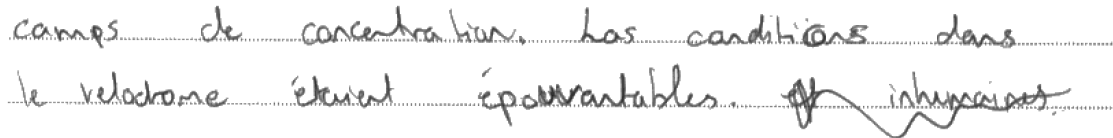 camps de concentration. Las conditions dans
le velodrome étaient épouvantables. inhumaines.